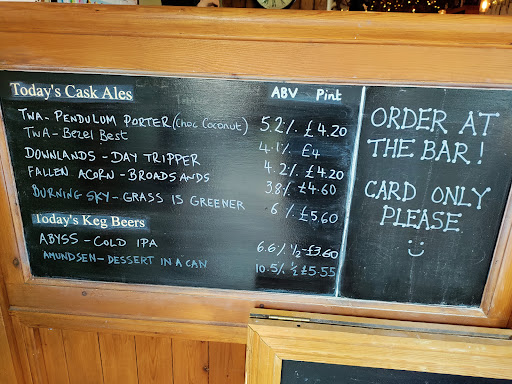 Today's Cask Ales ABV Pint
TWA - PENDULUM PORTER (Choc Coconut) 5.2% £4.20
TWA - Bezel Best 4.1% £4
DOWNLANDS - DAY TRIPPER 4.2% £4.20
FALLEN ACORN - BROADSANDS 3.8% £4.60
BURNING SKY - GRASS IS GREENER 6% £5.60
Today's Keg Beers
ABYSS - COLD IPA 6.6% ½ - £3.60
AMUNDSEN - DESSERT IN A CAN 10.5% ½ £5.55
ORDER AT
THE BAR!
CARD ONLY
PLEASE